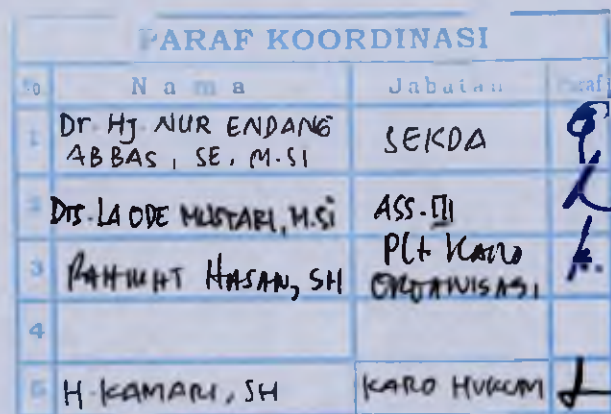 PARAF KOORDINASI
No Nama Jabatan Paraf
1 Dr. Hj. NUR ENDANG ABBAS, SE, M.SI SEKDA
2 Drs. LA ODE MUSTARI, M.Si ASS. III
3 RAHMAT HASAN, SH Plt KARO ORGANISASI
4
5 H. KAMARI, SH KARO HUKUM